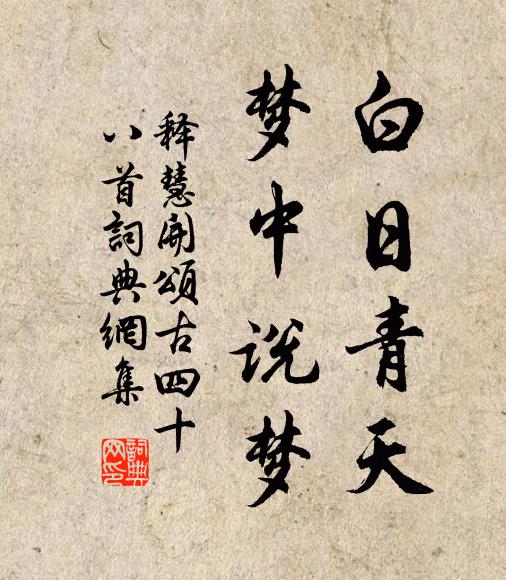 白日青天
梦中说梦
释慧開頌古四十
八首詞典網集
詞典網印